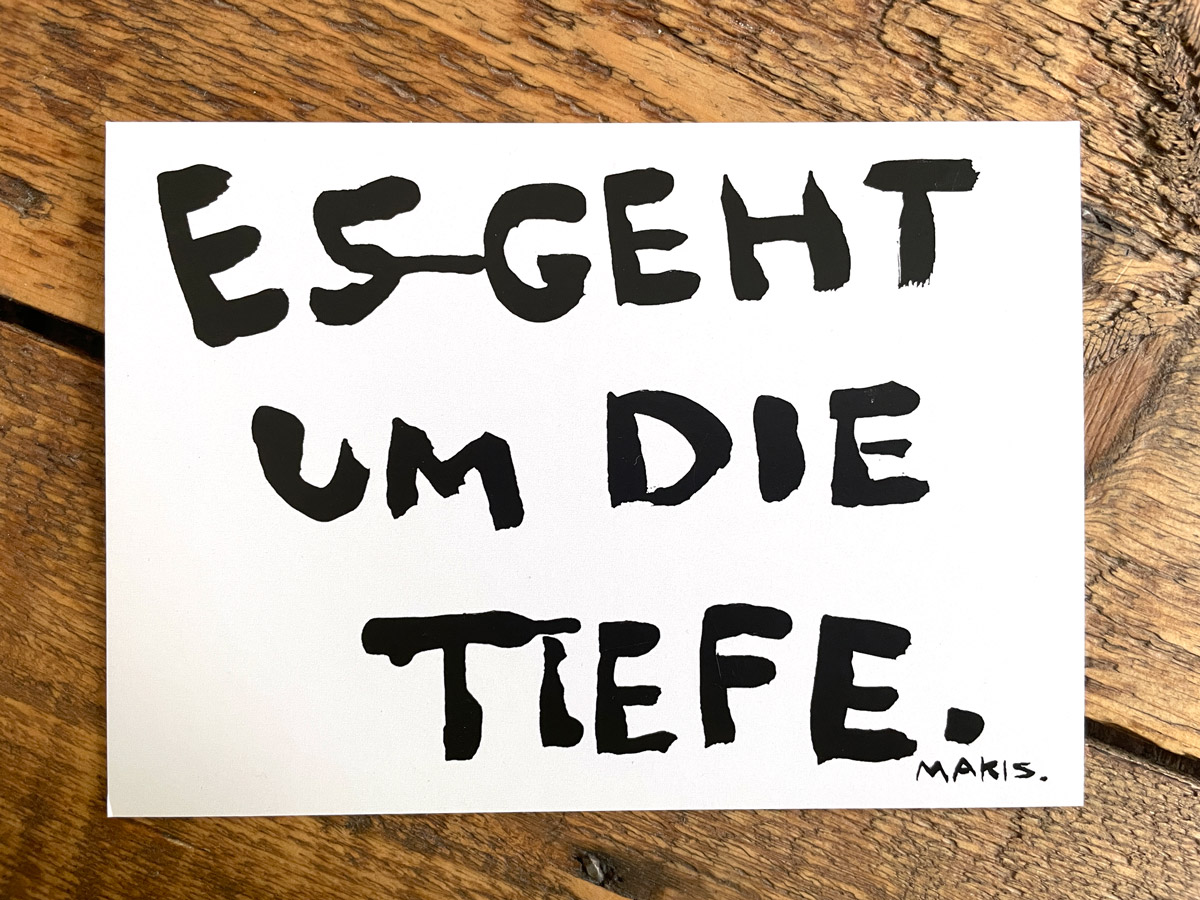 ES GEHT
UM DIE
TIEFE.
MAKIS.